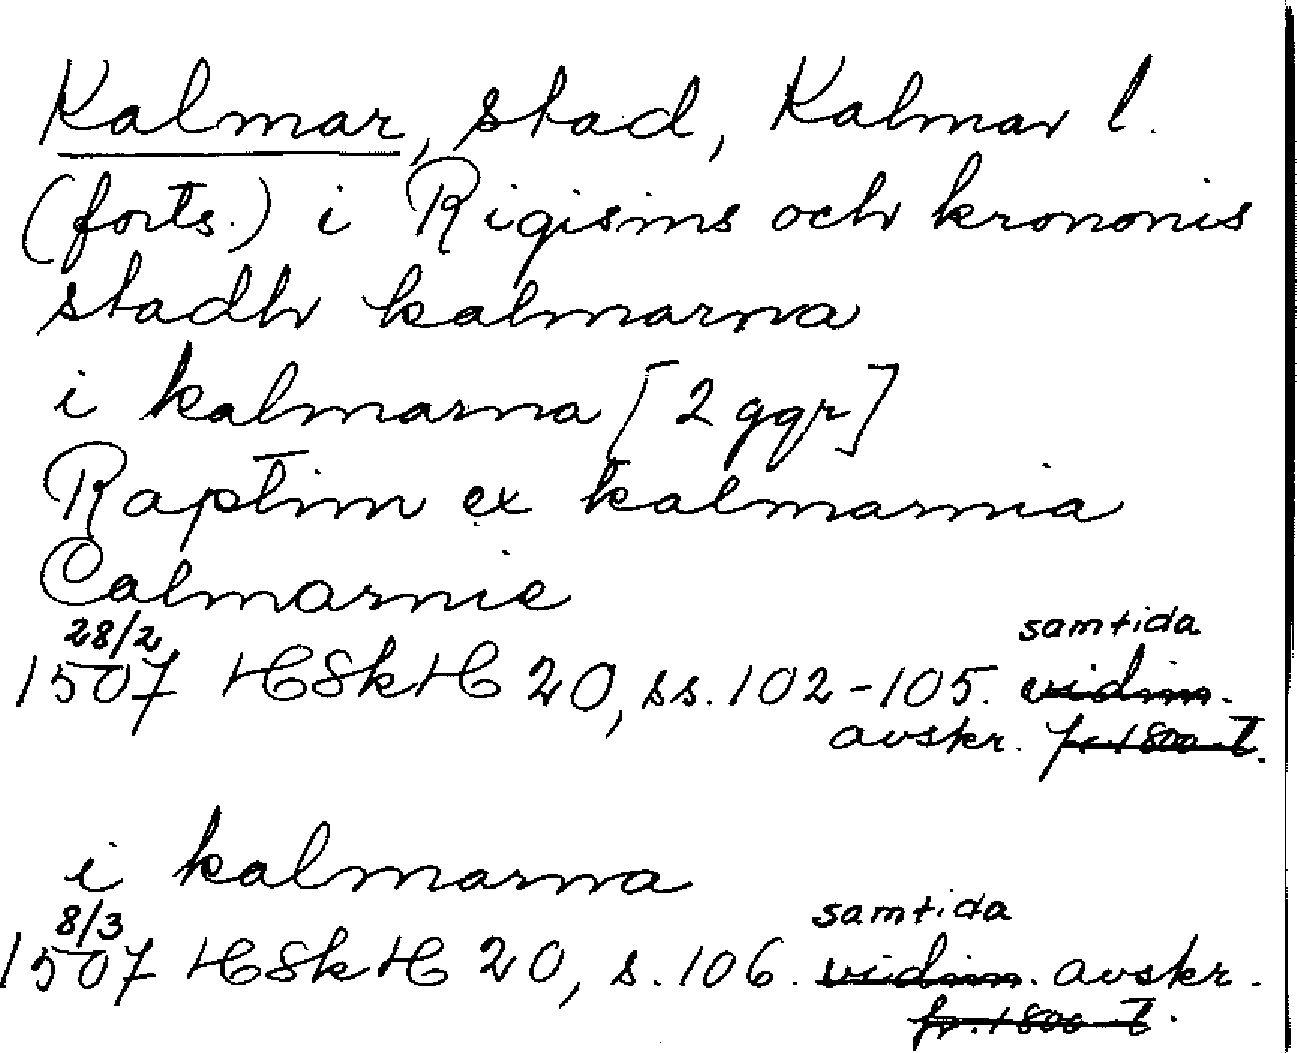 Kalmar, stad, Kalmar l.
(forts.) i Rigisins och krononis
stadh kalmarna
i kalmarna [2 ggr]
Raptim ex kalmarnia
Calmarnie
28/2
1507 HSkH 20, ss. 102-105. samtida vidim.
avskr. fr. 1800-t.
i kalmarna
8/3
1507 HSkH 20, s. 106. samtida vidim. avskr.
fr. 1800-t.